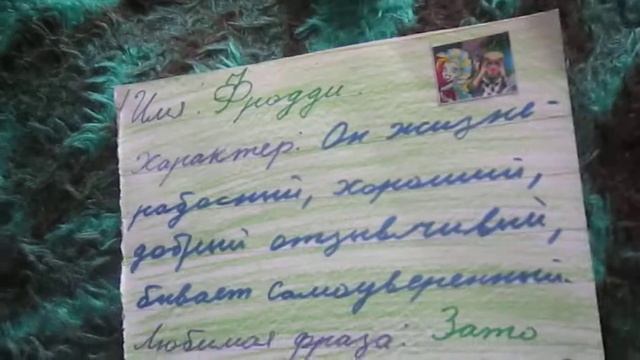 Имя: Фродди.
Характер: Он жизне-
радосний, хороший,
добрий отзывчивий,
бывает самоуверенный.
Любимая фраза: Зато